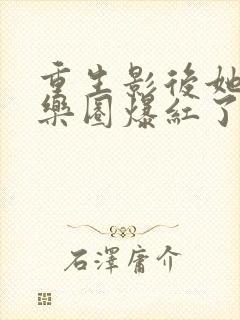 重生影後她
樂圈爆紅了
石澤庸介